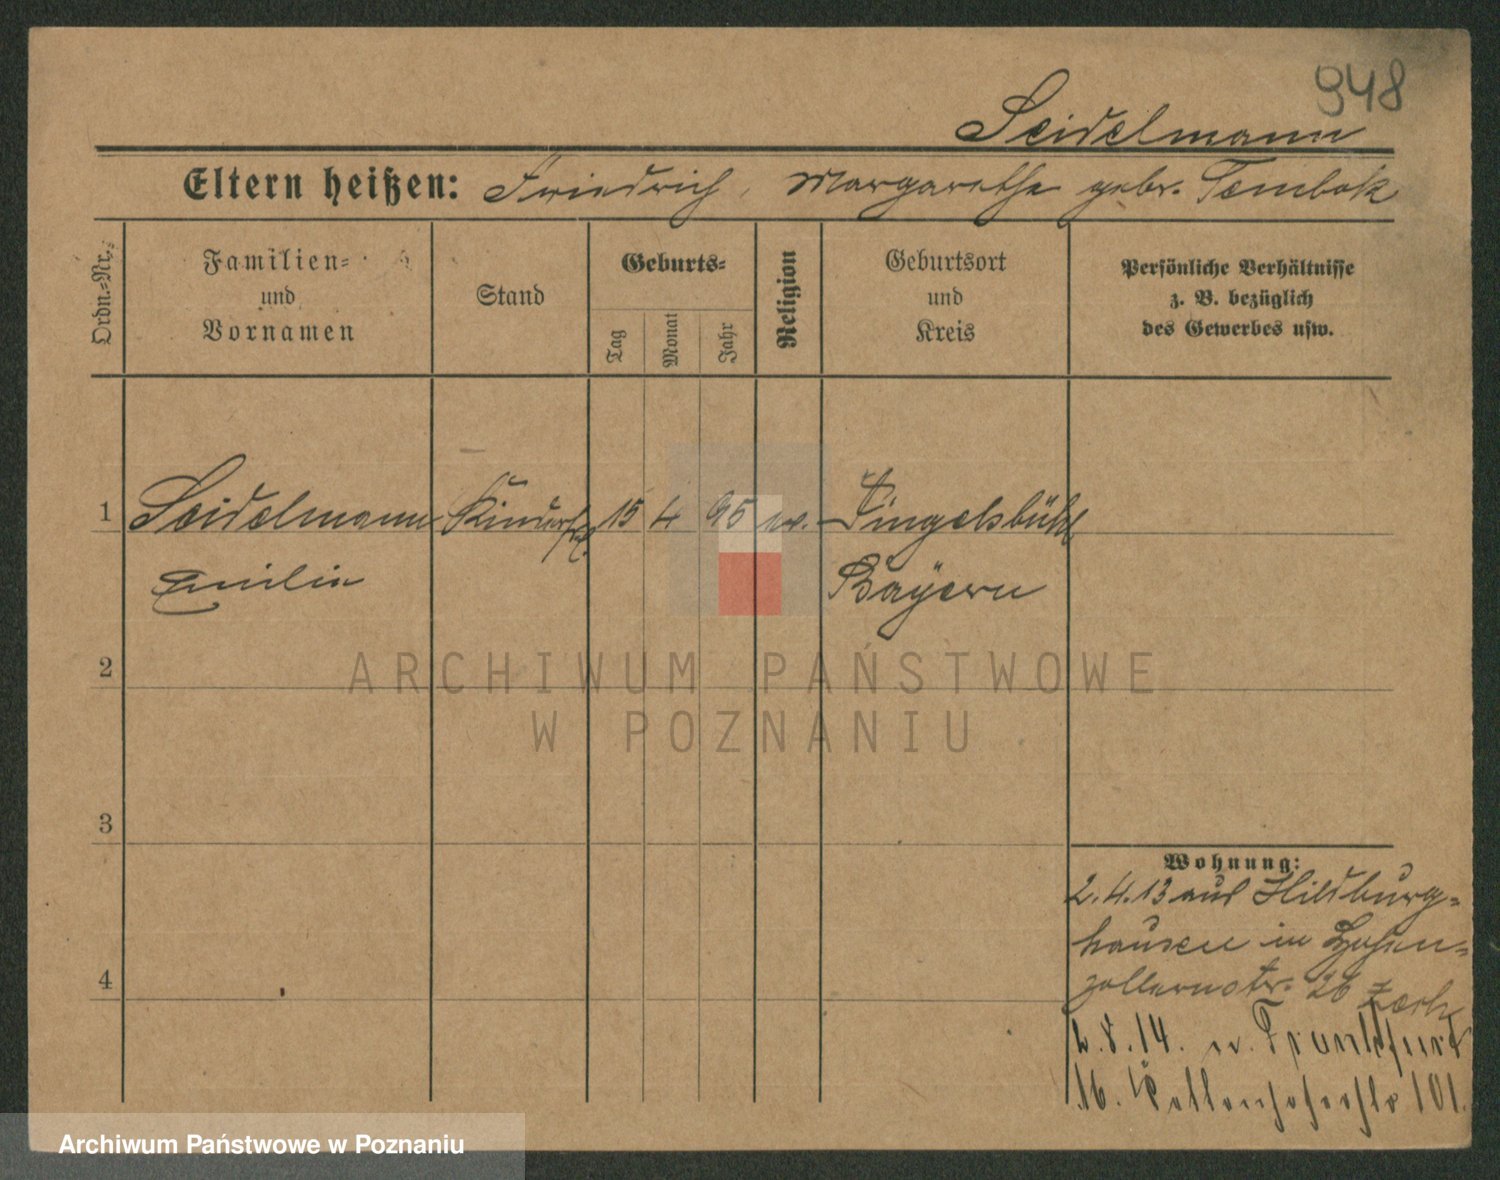 948
Seidelmann
Eltern heißen: Friedrich, Margarethe gebr. Tembok
Ordn.-Nr.
Familien-
und
Vornamen
Stand
Geburts-
Tag
Monat
Jahr
Religion
Geburtsort
und
Kreis
Persönliche Verhältnisse
z. B. bezüglich
des Gewerbes usw.
1 Seidelmann 15 4 95 ev.
Emilie
Bayern
2
ARCHIWUM PAŃSTWOWE
W POZNANIU
3
4
Wohnung:
2.4.13 aus Hildburg-
hausen in Hohen-
zollernstr. 26
2.8.14. n. Frankfurt
101.
Archiwum Państwowe w Poznaniu